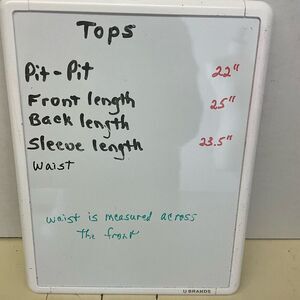 Tops
Pit-Pit 22"
Front length 25"
Back length
Sleeve length 23.5"
Waist
waist is measured across
the front
U BRANDS